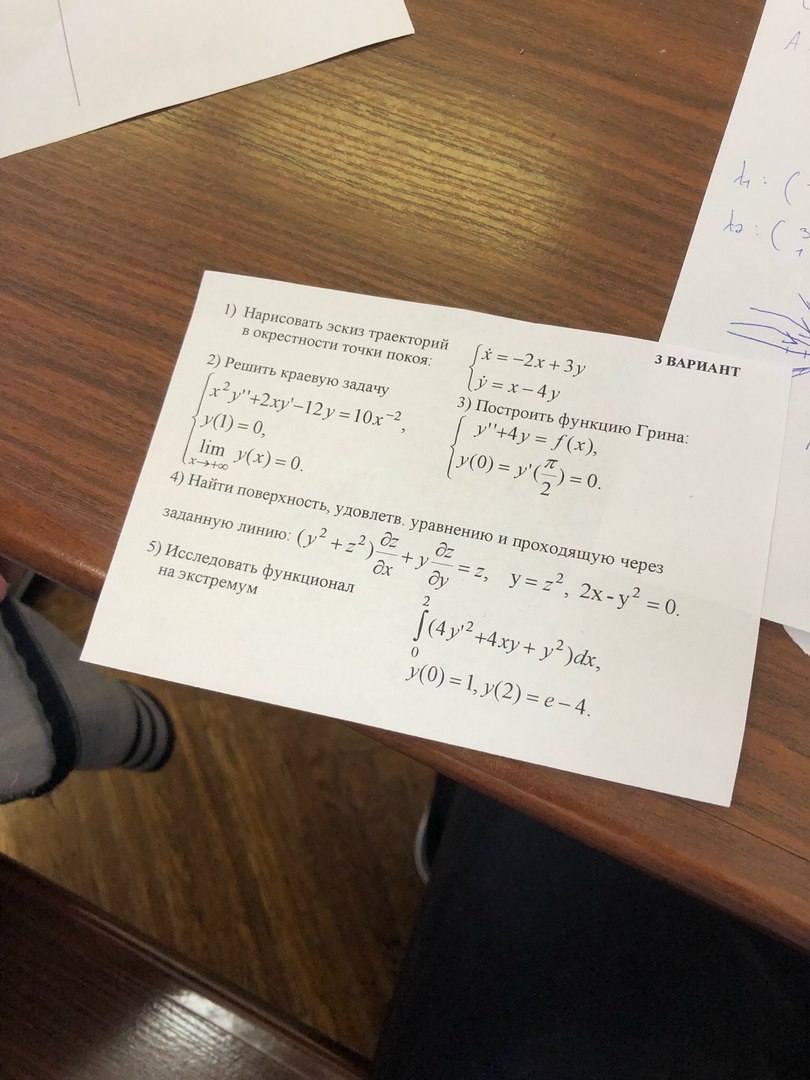 3 ВАРИАНТ
1) Нарисовать эскиз траекторий
в окрестности точки покоя:
{ẋ = −2x + 3y
ẏ = x − 4y
2) Решить краевую задачу
{x²y''+2xy'−12y = 10x⁻²,
y(1) = 0,
lim y(x) = 0.
x→+∞
3) Построить функцию Грина:
{y''+4y = f(x),
y(0) = y'(π/2) = 0.
4) Найти поверхность, удовлетв. уравнению и проходящую через
заданную линию: (y² + z²)∂z/∂x + y∂z/∂y = z, y = z², 2x - y² = 0.
5) Исследовать функционал
на экстремум
2
∫(4y'²+4xy + y²)dx,
0
y(0) = 1, y(2) = e − 4.
A
3
1